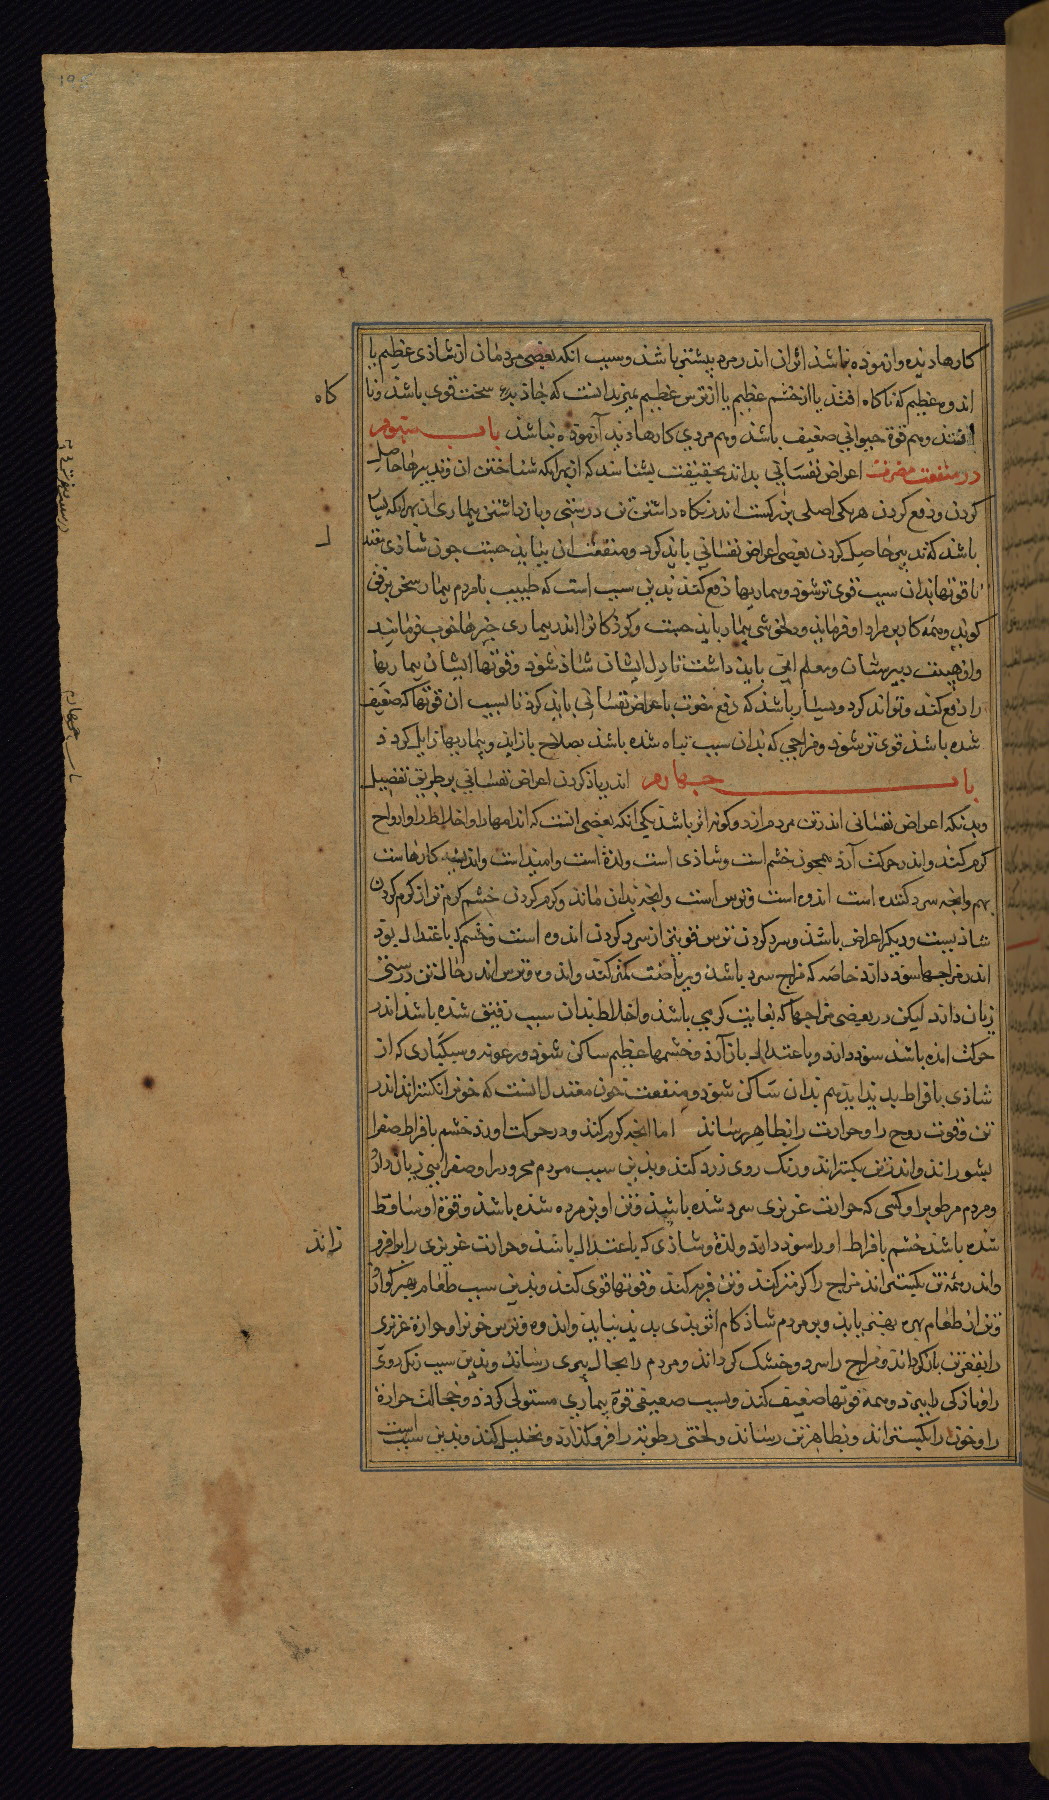 کارها دیده وازموده نباشد اثر ان اندر مردم بیشتر باشد و سبب انکه بعضی مردمان از شاذی عظیم یا
اندوه عظیم که ناکاه افتد یا از خشم عظیم یا از ترس عظیم بمیرند انست که جاذبه سخت قوی باشد ونا
افتد وهم قوة حیوانی ضعیف باشد وهم مردی کارها دیده آزموده نباشد باب سیوم
در منفعت مضرت اعراض نفسانی بداند بحقیقت بشناسد که از بهر انکه شناختن ان وتدبیرها حاصل
کردن ودفع کردن هر یکی اصلی بزرکست اندر نکاه داشتن تن درستی وبازداشتن بیماری از بهر انکه بسیا
باشد که تدبیر حاصل کردن بعضی اعراض نفسانی باید کرد ومنفعت ان بباید جست جون شاذی معتد
تا قوتها بدان سبب قوی تر شود وبماریها دفع کند بدین سبب است که طبیب با مردم بیمار سخن برفق
کوید وهمه کار بر مراد او فرماید ودلخوشی بیمار باید جست وکوذکان را اندر بیماری خبرها خوب فرمایند
واز هیبت دبیرستان ومعلم ایمن باید داشت تا دل ایشان شاذ شود وقوتها ایشان بیماریها
را دفع کند وتواند کرد وبسیار باشد که دفع مضرت باعراض نفسانی باید کرد تا بسبب ان قوتها که ضعیف
شده باشد قوی تر شود ومزاجی که بدان سبب تباه شده باشد بصلاح باز اید وبیماریها زایل کردد
باب جهارم اندر یاذ کردن اعراض نفسانی بر طریق تفصیل
وبدانکه اعراض نفسانی اندر تن مردم از دو کونه اثر باشد یکی انکه بعضی انست که اندامها را واخلاط را وارواح
کرم کند واندر حرکت آرد همجون خشم است وشاذی است ولذة است وامیذ است واندیشه کارهاست
بهم وانجه سرد کننده است اندوه است وترس است وانجه بدان ماند وکرم کردن خشم کرم تر از کرم کردن
شاذیست ودیکر اعراض باشد وسرد کردن ترس قویتر از سرد کردن اندوه است وخشم باعتدال بود
اندر مزاجها سود دارد خاصه که مزاج سرد باشد وبریاضت کمتر کند واندوه وترس اندر حال تن درستی
زیان دارد لیکن در بعضی مزاجها که بغایت کرمی باشد واخلاط بدان سبب رقیق شده باشد اندر
حرکت امده باشد سود دارد وباعتدال بازآرد وخشمها عظیم ساکن شود ورعونه وسبکساری که از
شاذی بافراط بدید اید هم بدان ساکن شود ومنفعت خون معتدل انست که خونرا بکستراند اندر
تن وقوت روح را وحرارت را بظاهر رساند اما انجه کرم کند ودر حرکت اورد خشم بافراط صفرا
بشوراند واندر تن بکستراند ورنک روی زرد کند وبدین سبب مردم محرور را وصفرایی زیان دارد
ومردم مرطوبرا وکسی که حرارت غریزی سرد شده باشد وتن او بزمرده شده باشد وقوة او ساقط
شده باشد خشم بافراط اورا سود دارد ولذة وشاذی که باعتدال باشد وحرارت غریزی را برافرو
واندر همه تن بکستراند مزاج را کرمتر کند وتن فربه کند وقوتها قوی کند وبدین سبب طعام بهتر کوارد
وتن از طعام بهره بهتر یابد وبر مردم شاذکام اثر بدی بدید نیاید واندوه وترس خونرا وحرارة غریزی
را بقعر تن بازکرداند ومزاج را سرد وخشک کرداند ومردم را بحال پیری رساند وبدین سبب رنک روی
را وتازکی را ببرد وهمه قوتها ضعیف کند وبسبب ضعیفی قوة بیماری مستولی کردد وخجالت حرارة
را وخون را بکستراند وبظاهر تن رساند ولختی رطوبة را فروکذارد وتحلیل کند وبدین سبب است
کاه
ل
زاند
باب جهارم